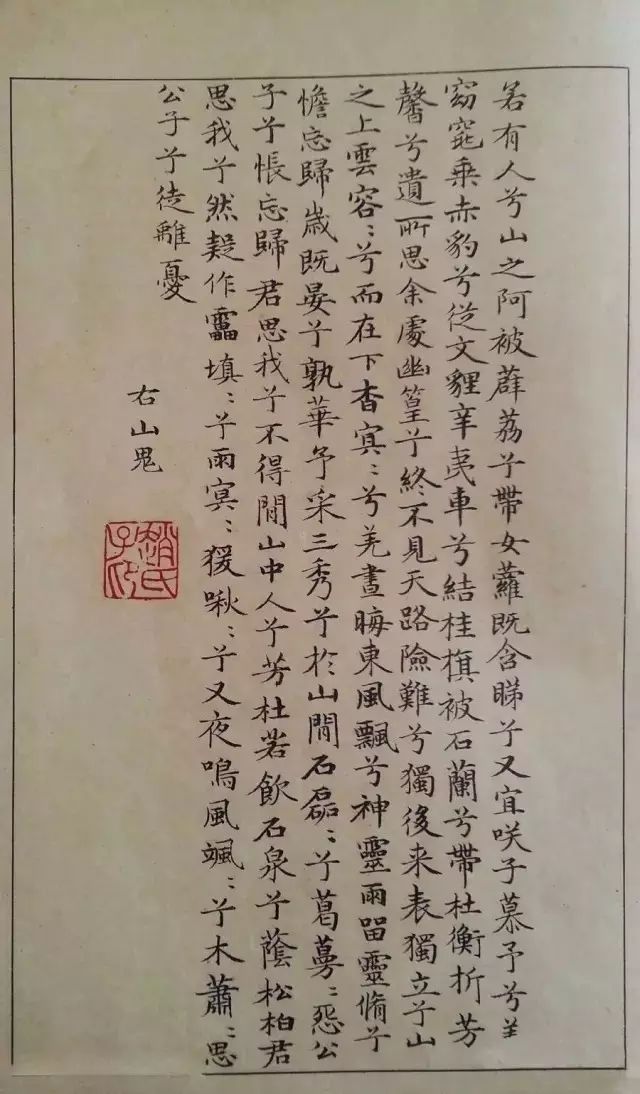 若有人兮山之阿被薜荔兮帶女蘿既含睇兮又宜咲子慕予兮善
窈窕乗赤豹兮從文貍辛夷車兮結桂旗被石蘭兮帶杜衡折芳
馨兮遺所思余處幽篁兮終不見天路險難兮獨後来表獨立兮山
之上雲容:兮而在下杳冥:兮羌晝晦東風飄兮神靈雨留靈脩兮
憺忘歸歲既晏兮孰華予采三秀兮於山間石磊:兮葛蔓:怨公
子兮悵忘歸君思我兮不得閒山中人兮芳杜若飲石泉兮蔭松柏君
思我兮然疑作靁填:兮雨冥:猨啾:兮又夜鳴風颯:兮木蕭:思
公子兮徒離憂
右山鬼
趙氏子昂